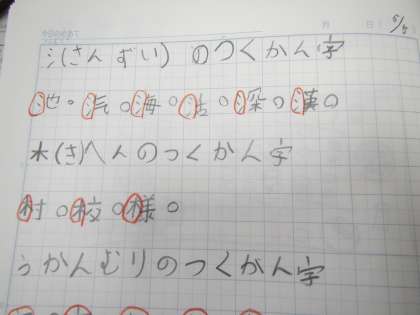 氵(さんずい)のつくかん字
池。汽。海。活。深。漢。
木(き)へんのつくかん字
村。校。様。
うかんむりのつくかん字